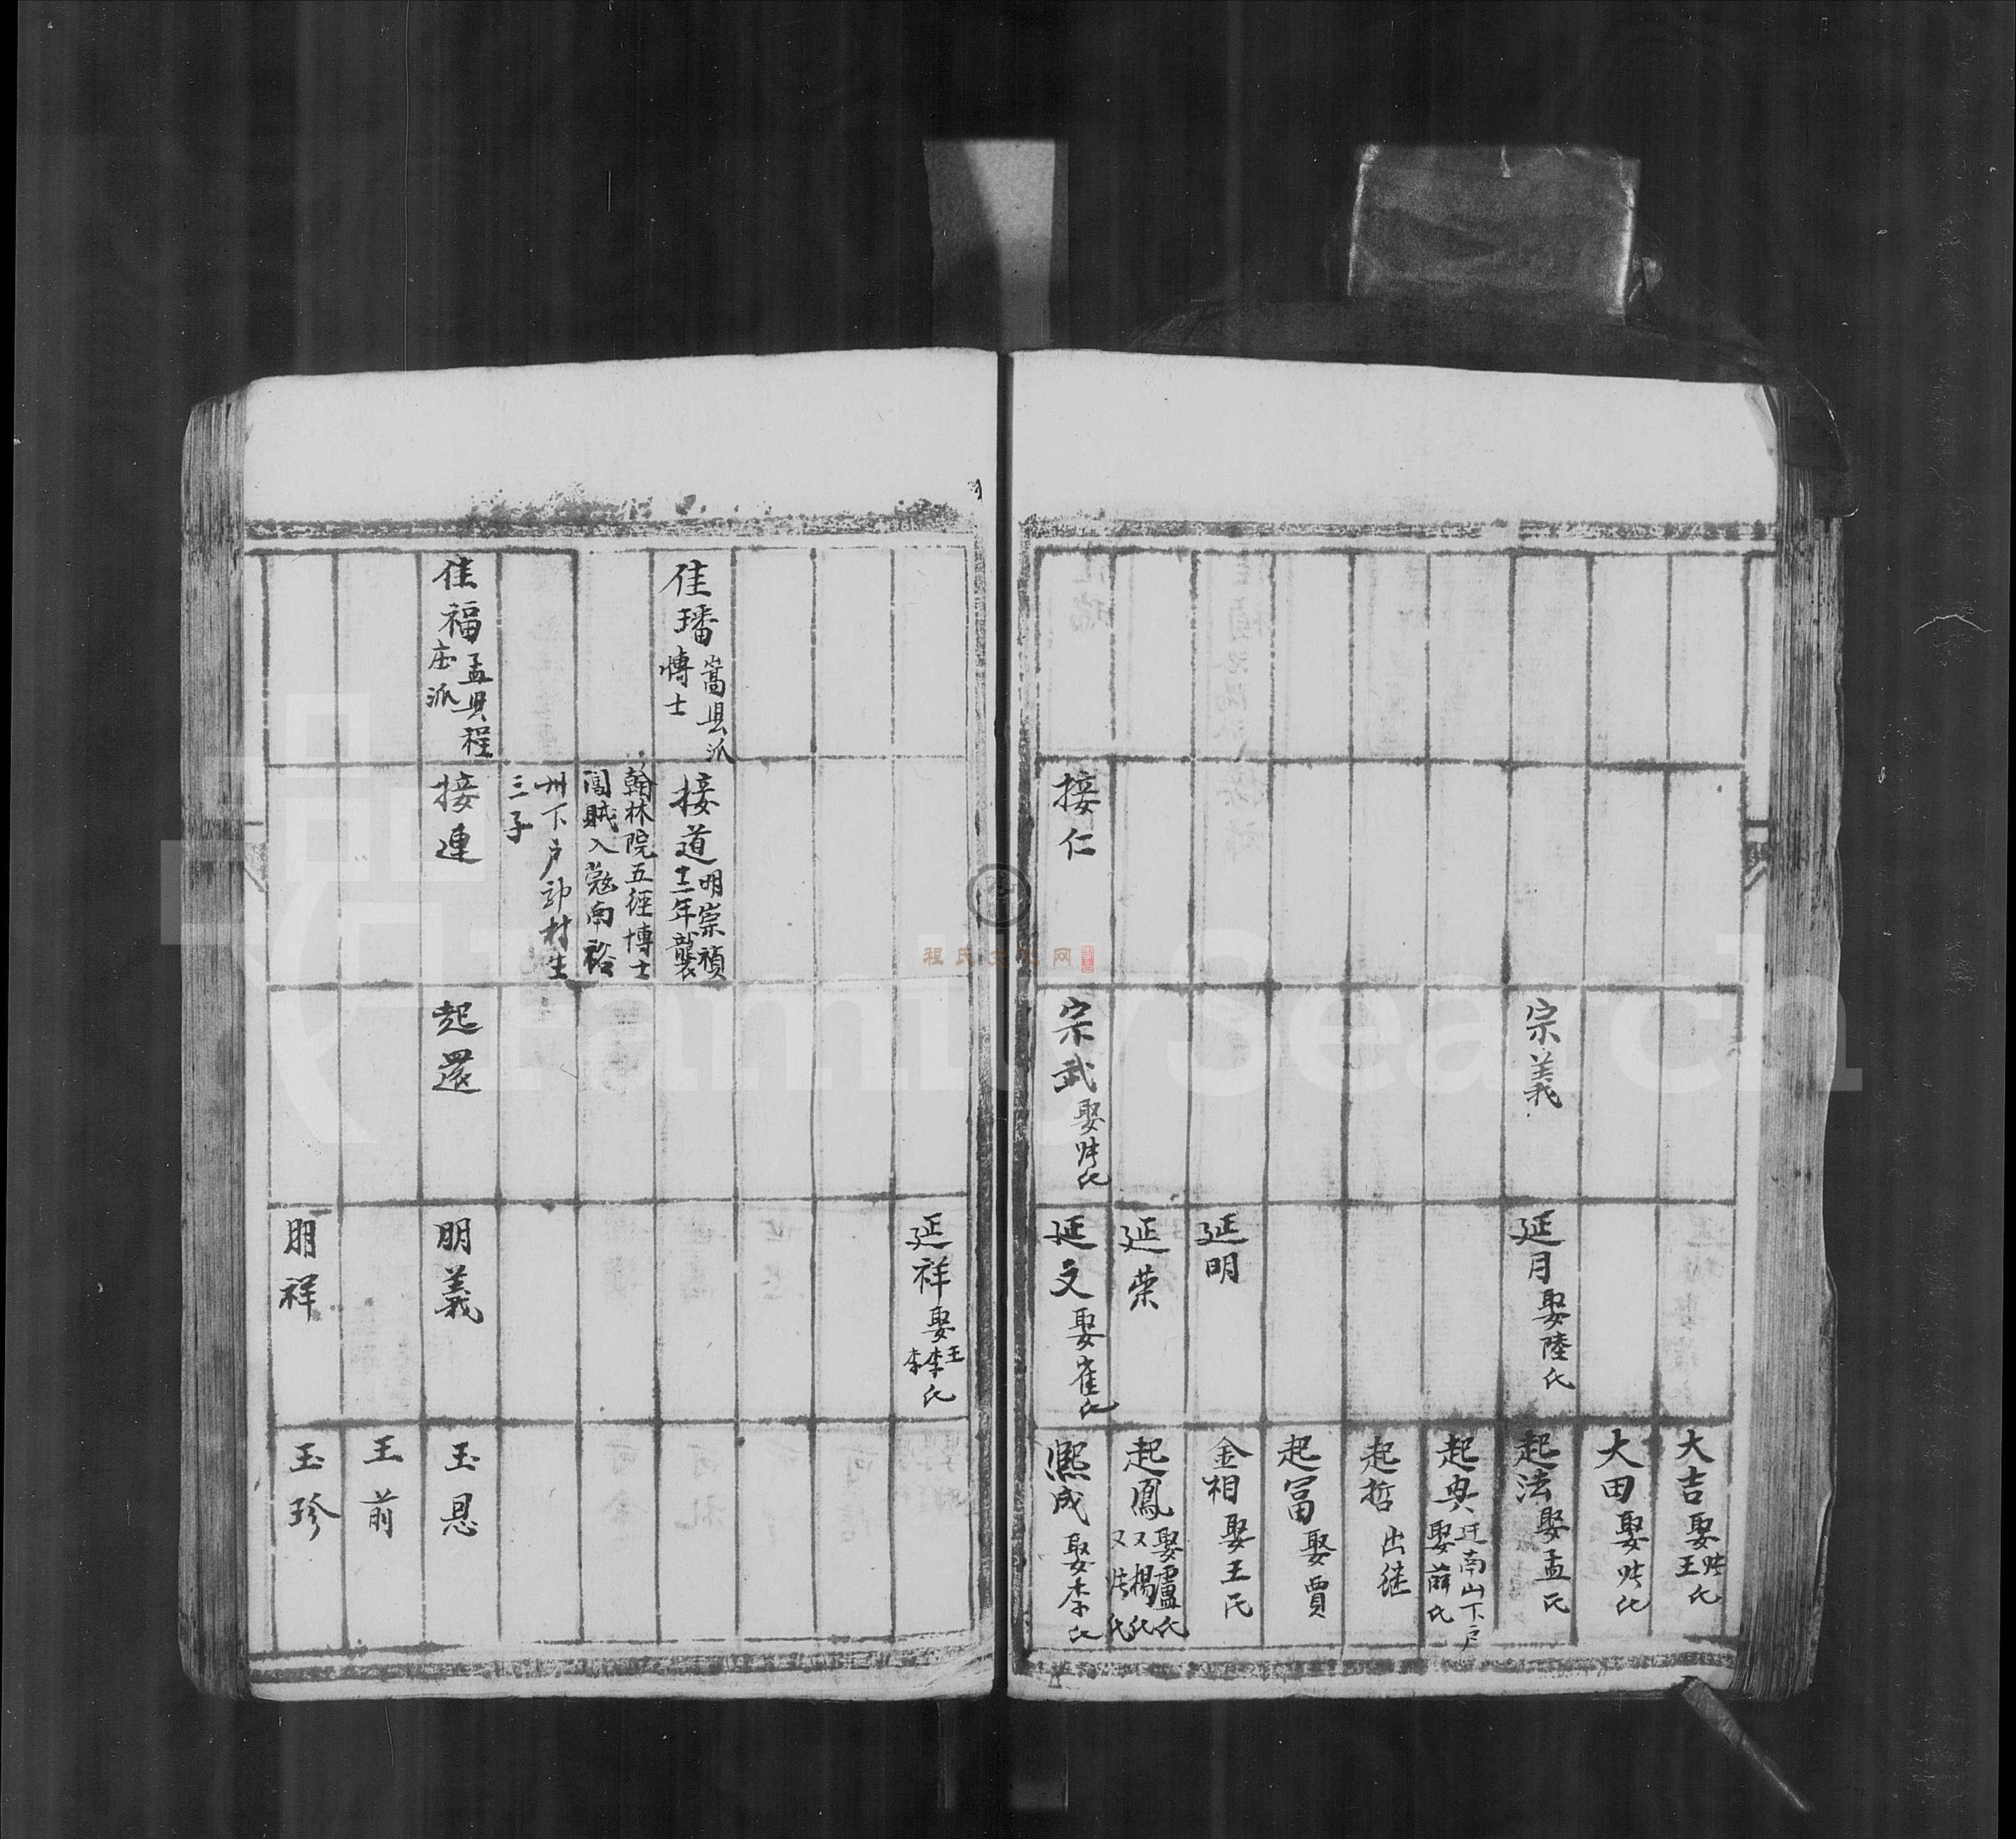 大吉娶陆王氏
大田娶陆氏
宗義
延月娶陸氏
起法娶孟氏
起典迁南山下户
娶薛氏
起哲出继
起富娶賈
延明
金相娶王氏
延荣
起鳳娶盧氏
又楊氏
又
接仁
宗武娶
氏
延文娶崔氏
熙成娶李氏
延祥娶王李李氏
佳璠嵩县派
博士
接道明崇禎
十二年襲
翰林院五经博士
闖賊入寇南裕
州下户
村生
三子
佳福孟县程
庄派
接連
起還
朋義
玉恩
王前
朋祥
玉珍
程氏文化网
FamilySearch